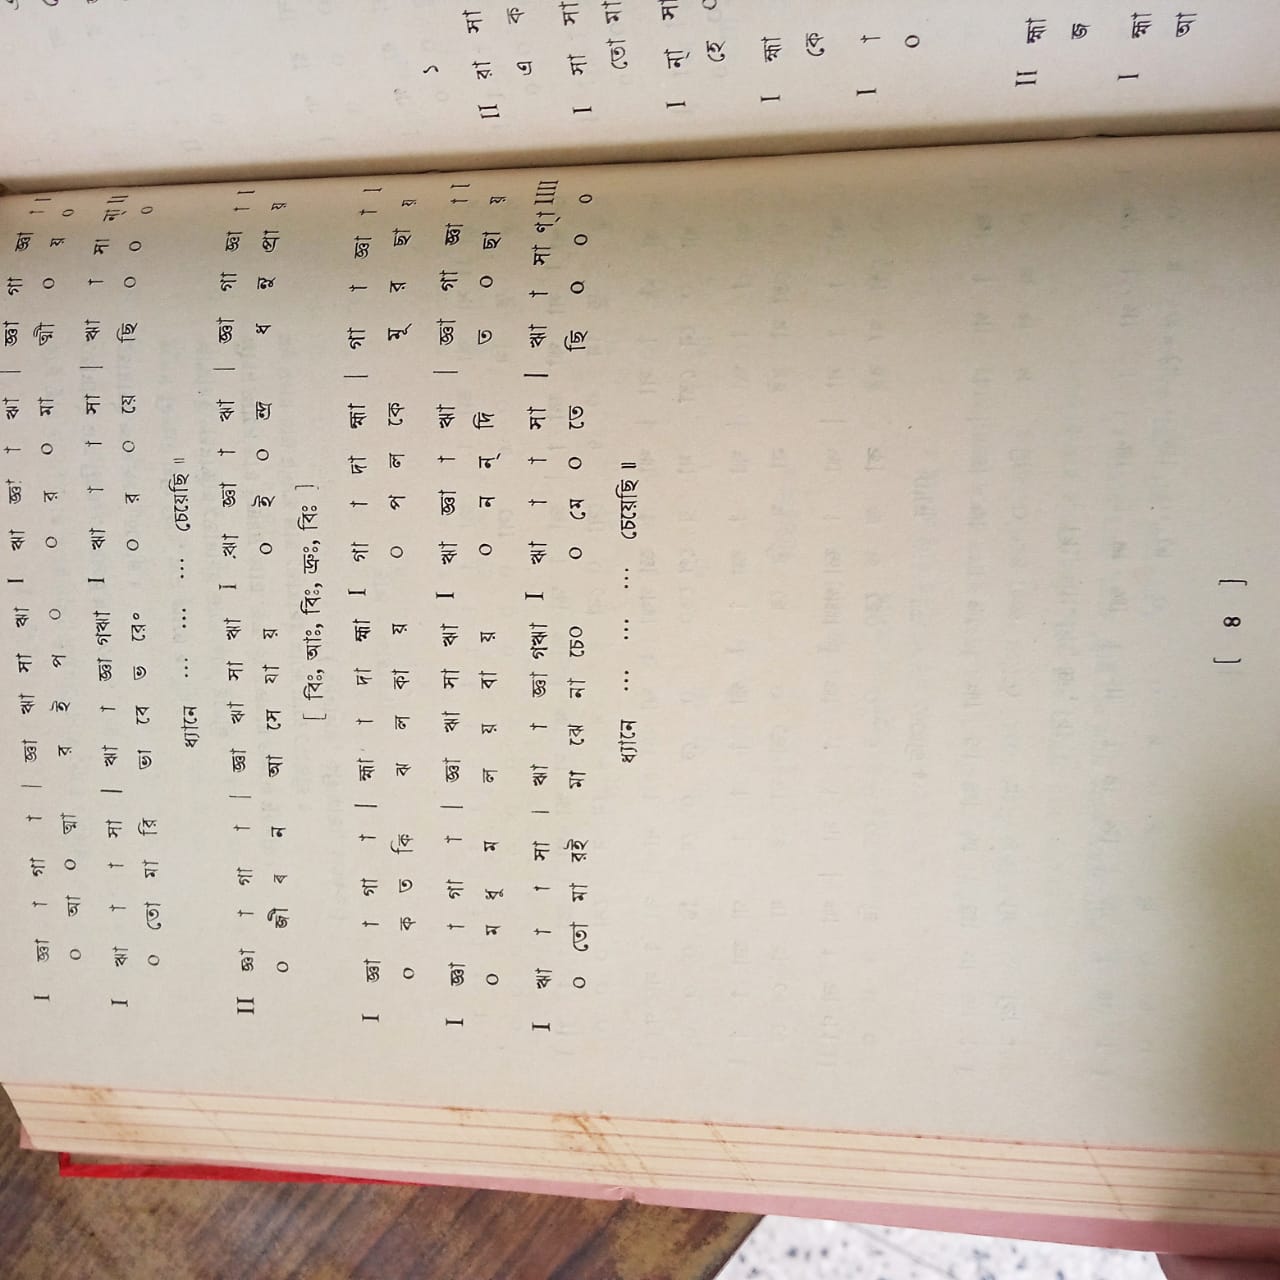 I জ্ঞা া গা া | জ্ঞা ঋা সা ঋা I ঋা জ্ঞা া ঋা | জ্ঞা গা জ্ঞা া I
০ আ ০ ত্মা র ই প ০ ০ র ০ মা ত্মী ০ য় ০
I ঋা া া সা | ঋা া জ্ঞা গঋা I ঋা া া সা | ঋা া সা ন্া II
০ তো মা রি ভা বে ভ রে০ ০ র ০ য়ে ছি ০ ০ ০
ধ্যানে ... ... ... চেয়েছি ॥
II জ্ঞা া গা া | জ্ঞা ঋা সা ঋা I ঋা জ্ঞা া ঋা | জ্ঞা গা জ্ঞা া I
০ জী ব ন আ সে যা য় ০ ই ০ ন্দ্র ধ নু প্রা য়
[ বিঃ, আঃ, বিঃ, দ্রুঃ, বিঃ ]
I জ্ঞা া গা া | হ্মা া দা হ্মা I গা া দা হ্মা | গা া জ্ঞা া I
০ ক ত কি ঝ ল কা য় ০ প ল কে মূ র ছা য়
I জ্ঞা া গা া | জ্ঞা ঋা সা ঋা I ঋা জ্ঞা া ঋা | জ্ঞা গা জ্ঞা া I
০ ম ধু ম ল য় বা য় ০ ন ন্ দি ত ০ ছা য়
I ঋা া া সা | ঋা া জ্ঞা গঋা I ঋা া া সা | ঋা া সা ণ্া IIII
০ তো মা রই মা ঝে না চে০ ০ মে ০ তে ছি ০ ০ ০
ধ্যানে ... ... ... চেয়েছি ॥
[ 8 ]
১
II রা সা
এ ক
I সা সা
তো মা
I ন্া সা
হে
I হ্মা
কে
I া
০
II হ্মা
জ
I হ্মা
আ